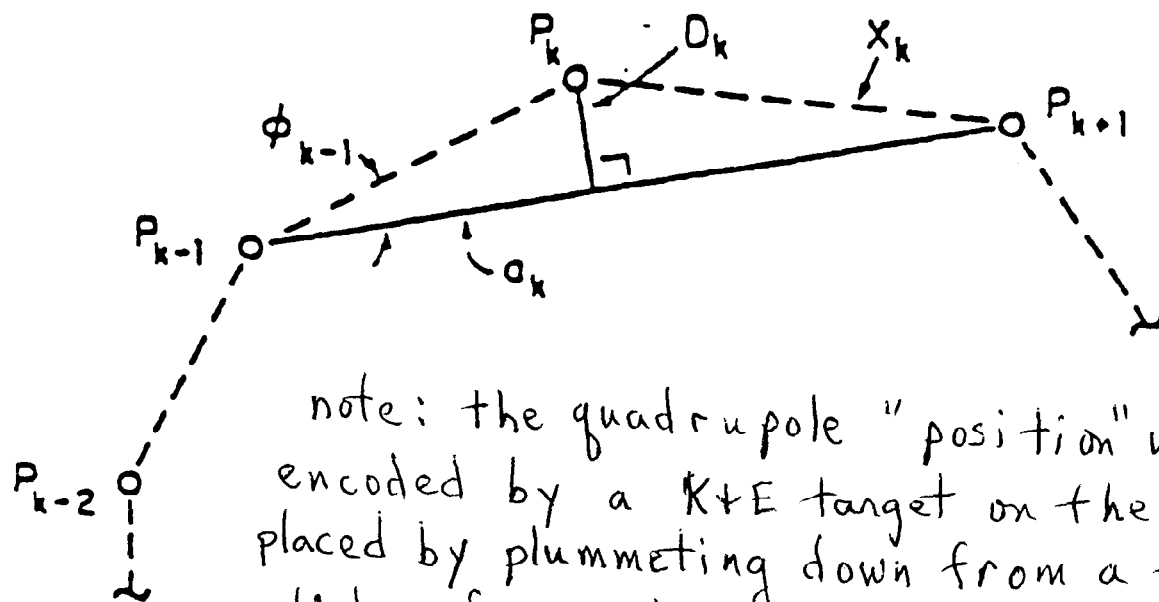 P_k
D_k
X_k
P_{k+1}
ϕ_{k-1}
P_{k-1}
a_k
note: the quadrupole "position"
P_{k-2}
encoded by a K+E target on the
placed by plummeting down from a